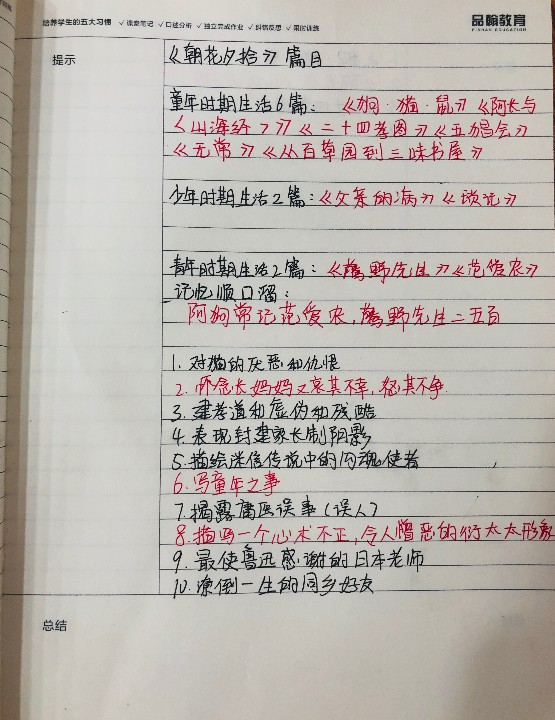 培养学生的五大习惯 ✓课堂笔记 ✓口述分析 ✓独立完成作业 ✓纠错反思 ✓限时训练
品翰教育
PINHAN EDUCATION
提示
《朝花夕拾》篇目
童年时期生活6篇：《狗·猫·鼠》《阿长与
〈山海经〉》《二十四孝图》《五猖会》
《无常》《从百草园到三味书屋》
少年时期生活2篇：《父亲的病》《琐记》
青年时期生活2篇：《藤野先生》《范爱农》
记忆顺口溜：
阿狗常记范爱农，藤野先生二五百
1. 对猫的厌恶和仇恨
2. 怀念长妈妈又哀其不幸，怒其不争
3. 建孝道和虚伪和残酷
4. 表现封建家长制阴影
5. 描绘迷信传说中的勾魂使者
6. 写童年之事
7. 揭露庸医误事（误人）
8. 描写一个心术不正，令人憎恶的衍太太形象
9. 最使鲁迅感谢的日本老师
10. 潦倒一生的同乡好友
总结